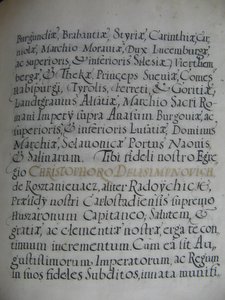 Burgundiæ, Brabantiæ, Styriæ, Carinthiæ, Car,
niolæ, Marchio Moraviæ, Dux Lucemburgæ,
ac superioris & inferioris Silesiæ, Viertem,
bergæ, & Thekæ, Princeps Sueviæ, Comes
Habspurgi, Tyrolis, Ferreti, & Goritiæ,
Landtgravius Alsatiæ, Marchio Sacri Ro,
mani Imperÿ supra Anasum Burgoviæ, ac
superioris, & inferioris Lusatiæ, Dominus
Marchiæ, Sclavonicæ, Portus Naonis,
& Salinarum. Tibi fideli nostro Egre,
gio CHRISTOPHORO DELISIMENOVICH,
de aliter
Præsidÿ nostri Carlostadiensis supremo
Huszaronum Capitaneo, Salutem, &
gratiæ, ac clementiæ nostræ, erga te con,
tinuum incrementum. Cum ea sit Au,
gustissimorum, Imperatorum, ac Regum
in suos fideles Subditos, innata munifi,